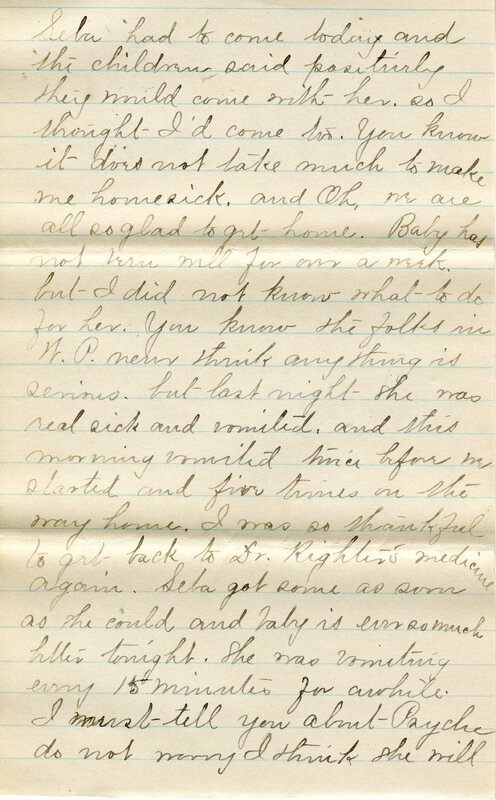 Seba had to come today and
the children said positively
they would come with her. so I
thought I'd come too. You know
it does not take much to make
me homesick. and Oh, we are
all so glad to get home. Baby has
not been well for over a week.
but I did not know what to do
for her. You know the folks in
W. P. never think anything is
serious. but last night she was
real sick and vomited. and this
morning vomited twice before we
started and five times on the
way home. I was so thankful
to get back to Dr. Righter's medicine
again. Seba got some as soon
as she could and baby is ever so much
better tonight. She was vomiting
every 15 minutes for awhile.
I must tell you about Psyche
do not worry I think she will